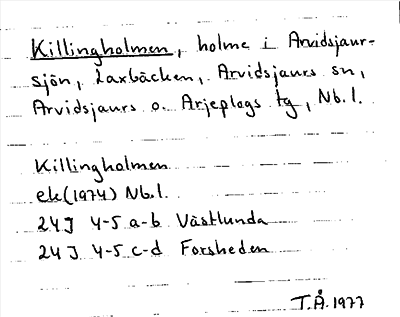 Killingholmen, holme i Arvidsjaur-
sjön, Laxbäcken, Arvidsjaurs sn,
Arvidsjaurs o. Arjeplogs tg, Nb.l.
Killingholmen
ek (1974) Nb.l.
24J 4-5 a-b Västlunda
24J 4-5 c-d Forsheden
T.Å. 1977